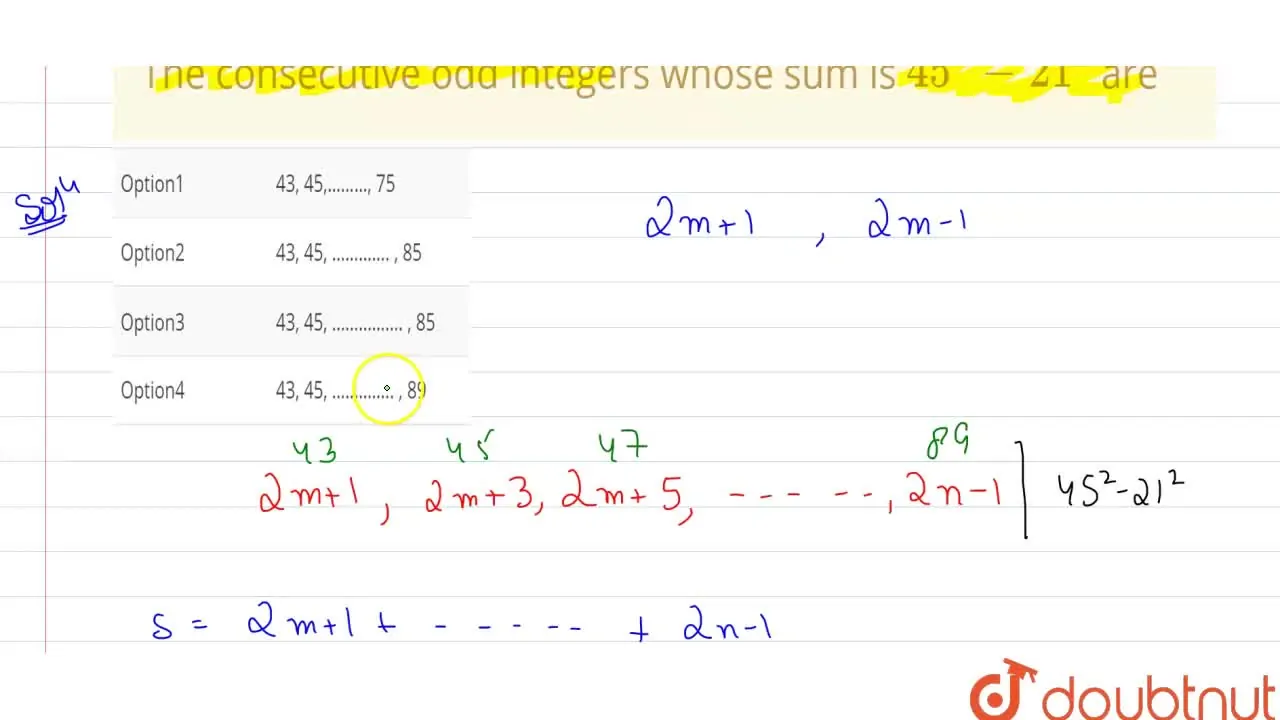 The consecutive odd integers whose sum is 45² − 21² are
Option1 43, 45,........., 75
Solⁿ
2m+1 , 2m-1
Option2 43, 45, ............. , 85
Option3 43, 45, ................ , 85
Option4 43, 45, .............. , 89
43 45 47 89
2m+1 , 2m+3, 2m+5, - - - - - -, 2n-1 | 45²-21²
S = 2m+1 + - - - - - + 2n-1
doubtnut